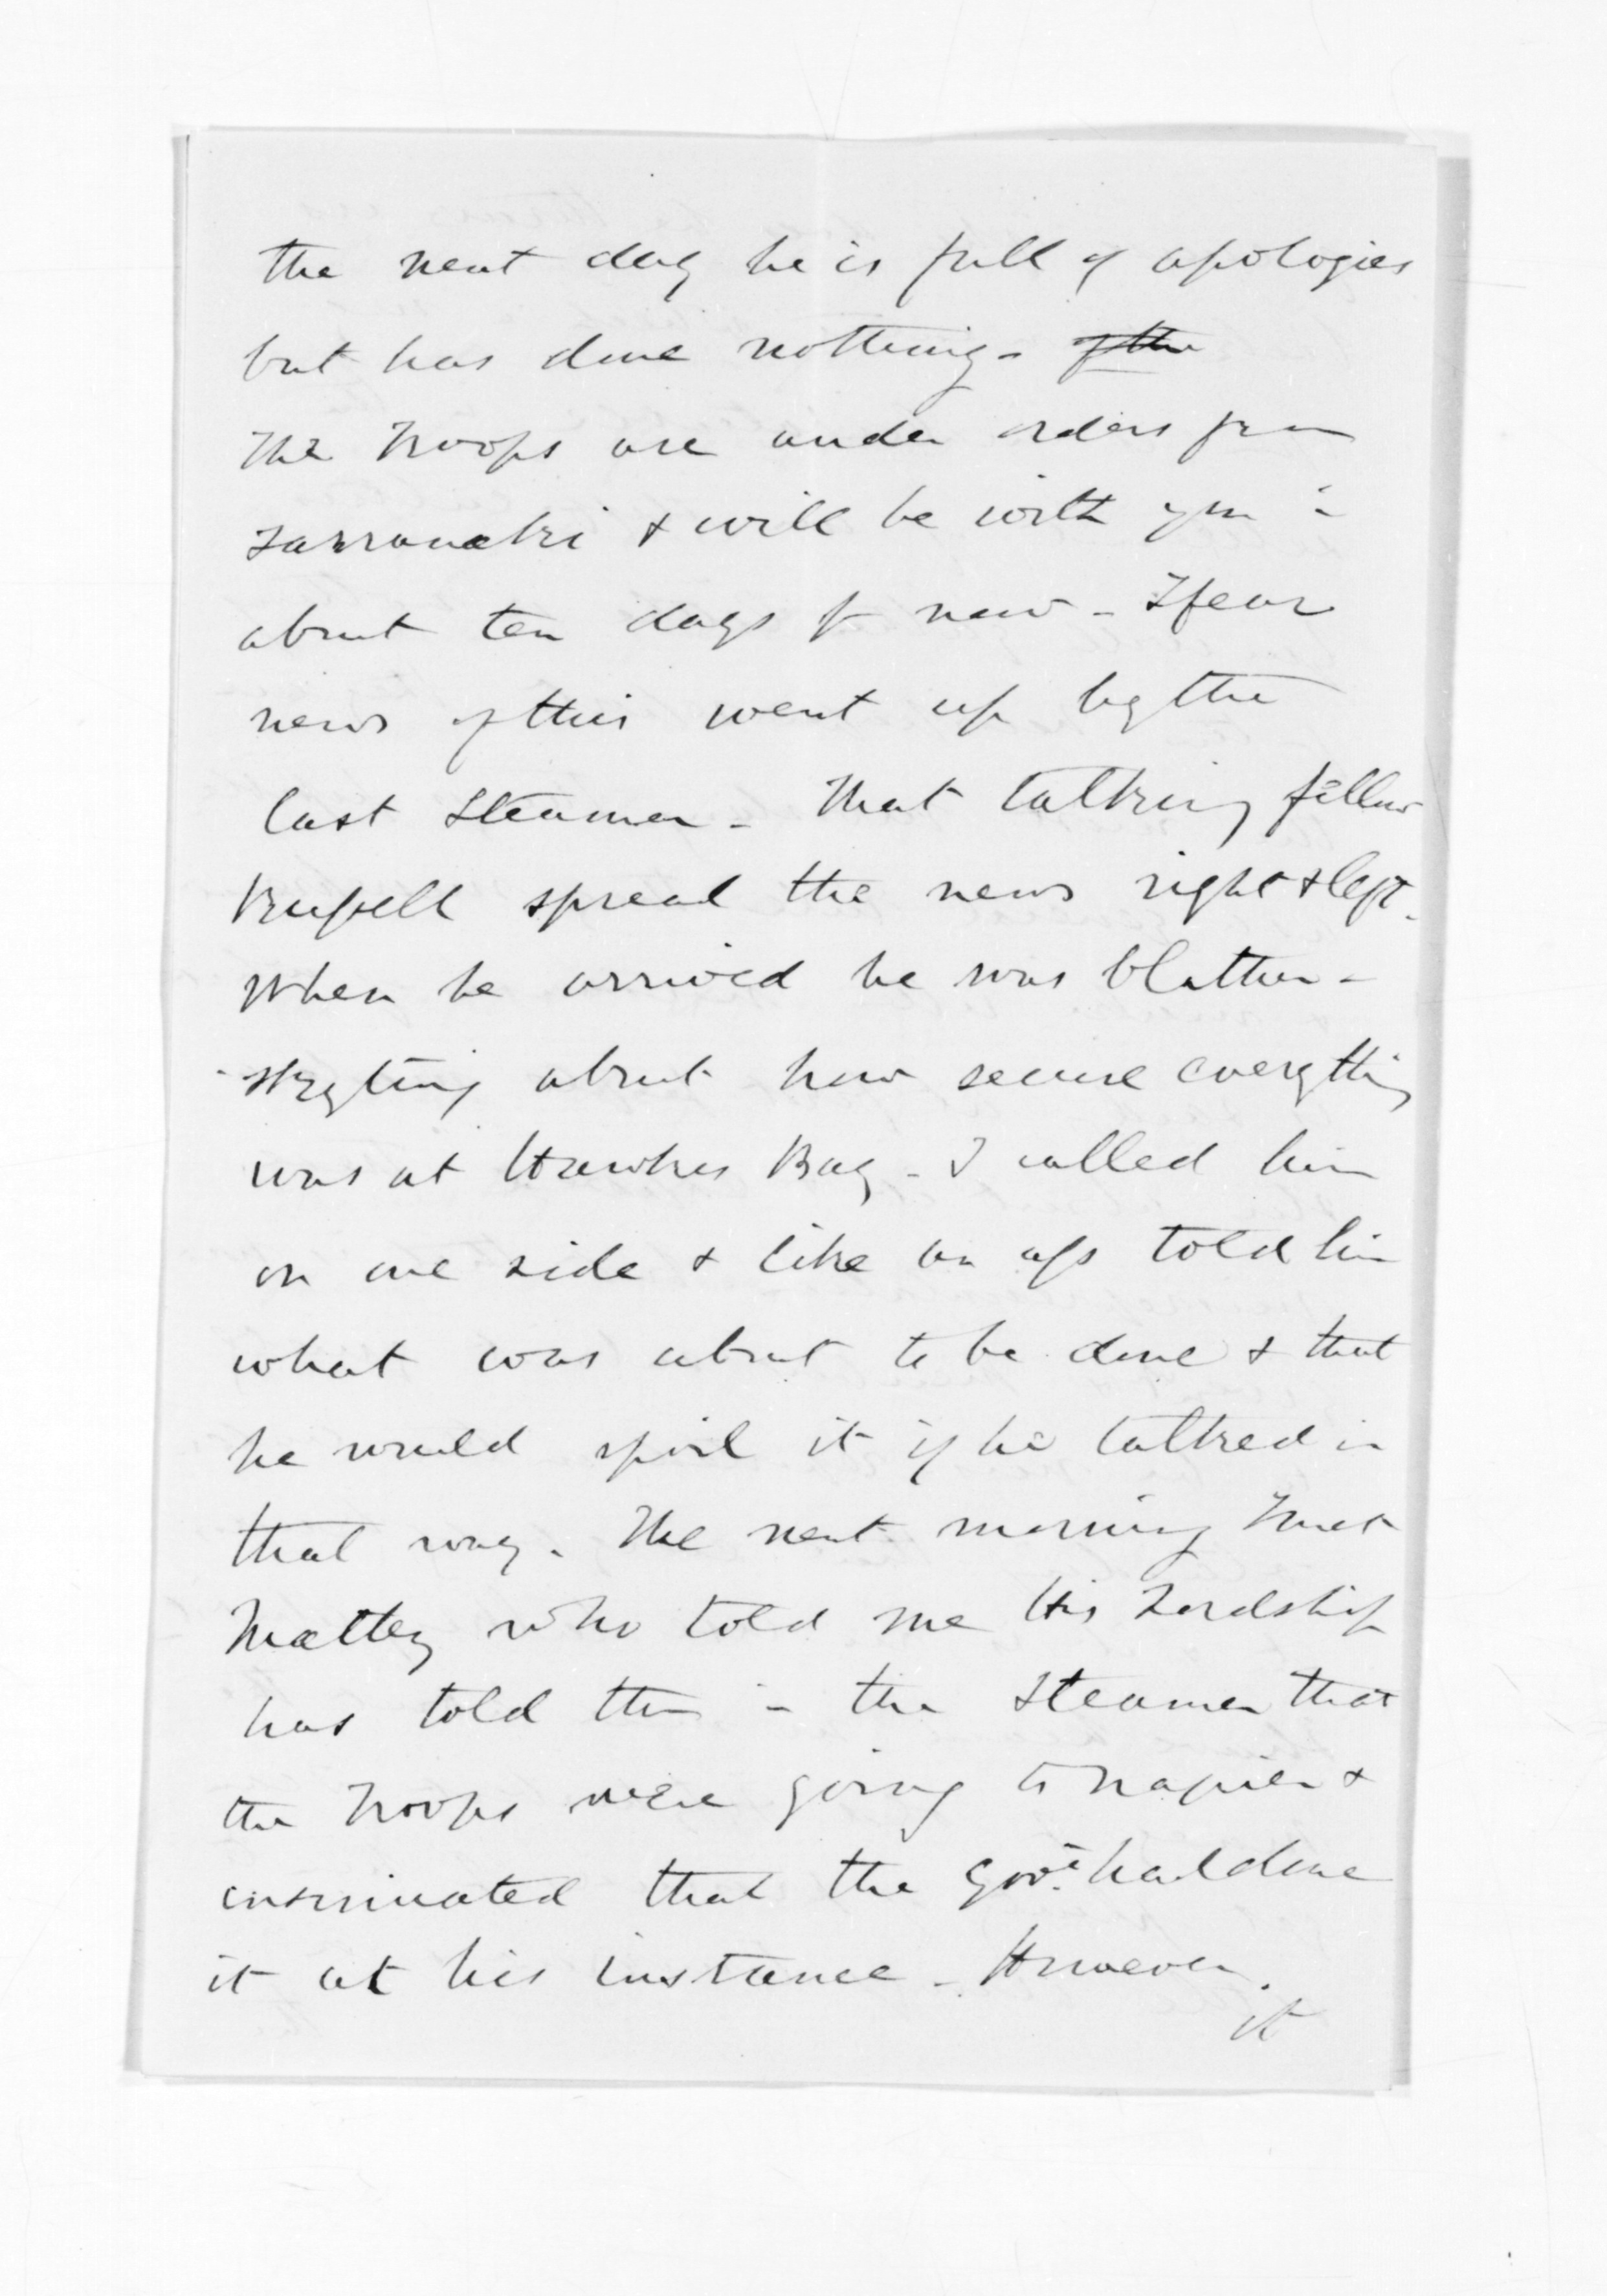 the next day he is full of apologies
but has done nothing - of the
The Troops are under orders from
Tarranaki & will be with you in
about ten days fr now - I fear
news of this went up by the
last Steamer - That talking fellow
Russell spread the news right & left.
When he arrived he was blather-
-skyting about how secure everything
was at Hawkes Bay - I called him
on one side & like an ass told him
what was about to be done & that
he would spoil it if he talked in
that way. The next morning I met
Maltby who told me His Lordship
has told them in the Steamer that
the Troops were going to Napier &
insinuated that the Govr. had done
it at his instance - However
it